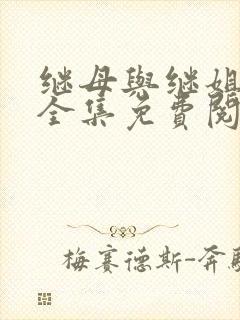 继母與继姐
全集免費閱
梅赛德斯-奔馳